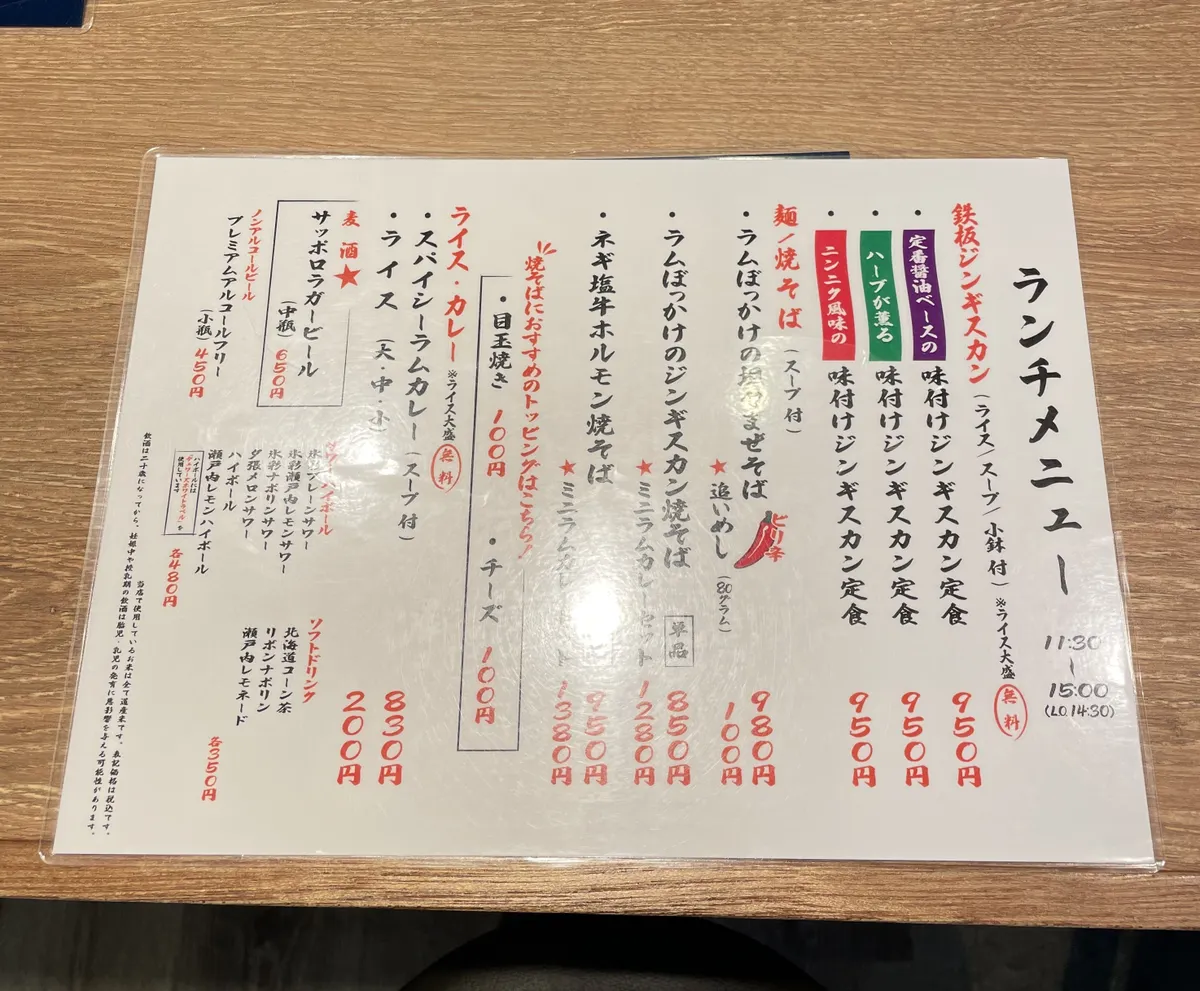 ランチメニュー
11:30
〜
15:00
(L.O.14:30)
鉄板ジンギスカン(ライス/スープ/小鉢 付)※ライス大盛 無料
・定番醤油ベースの 味付けジンギスカン定食 950円
・ハーブが薫る 味付けジンギスカン定食 950円
・ニンニク風味の 味付けジンギスカン定食 950円
麺/焼そば(スープ付)
・ラムぼっかけの まぜそば ピリ辛 980円
★追いめし(80グラム) 100円
・ラムぼっかけのジンギスカン焼そば 単品 850円
★ミニラムカレーセット 1280円
・ネギ塩牛ホルモン焼そば 950円
★ミニラムカレー ト 1380円
焼そばにおすすめのトッピングはこちら!
・目玉焼き 100円 ・チーズ 100円
ライス・カレー ※ライス大盛 無料
・スパイシーラムカレー(スープ付) 830円
・ライス(大・中・小) 200円
麦酒★
サッポロラガービール
(中瓶)650円
ノンアルコールビール
プレミアムアルコールフリー
(小瓶)450円
サワー・ハイボール
氷彩プレーンサワー
氷彩瀬戸内レモンサワー
氷彩ナポリンサワー
夕張メロンサワー
ハイボール
瀬戸内レモンハイボール
ハイボールには
「デュワーズホワイトラベル」を
使用しています
各480円
ソフトドリンク
北海道コーン茶
リボンナポリン
瀬戸内レモネード
各350円
当店で使用しているお米は全て道産米です。表記価格は税込です。
飲酒は二十歳になってから。妊娠中や授乳期の飲酒は胎児・乳児の発育に悪影響を与える可能性があります。